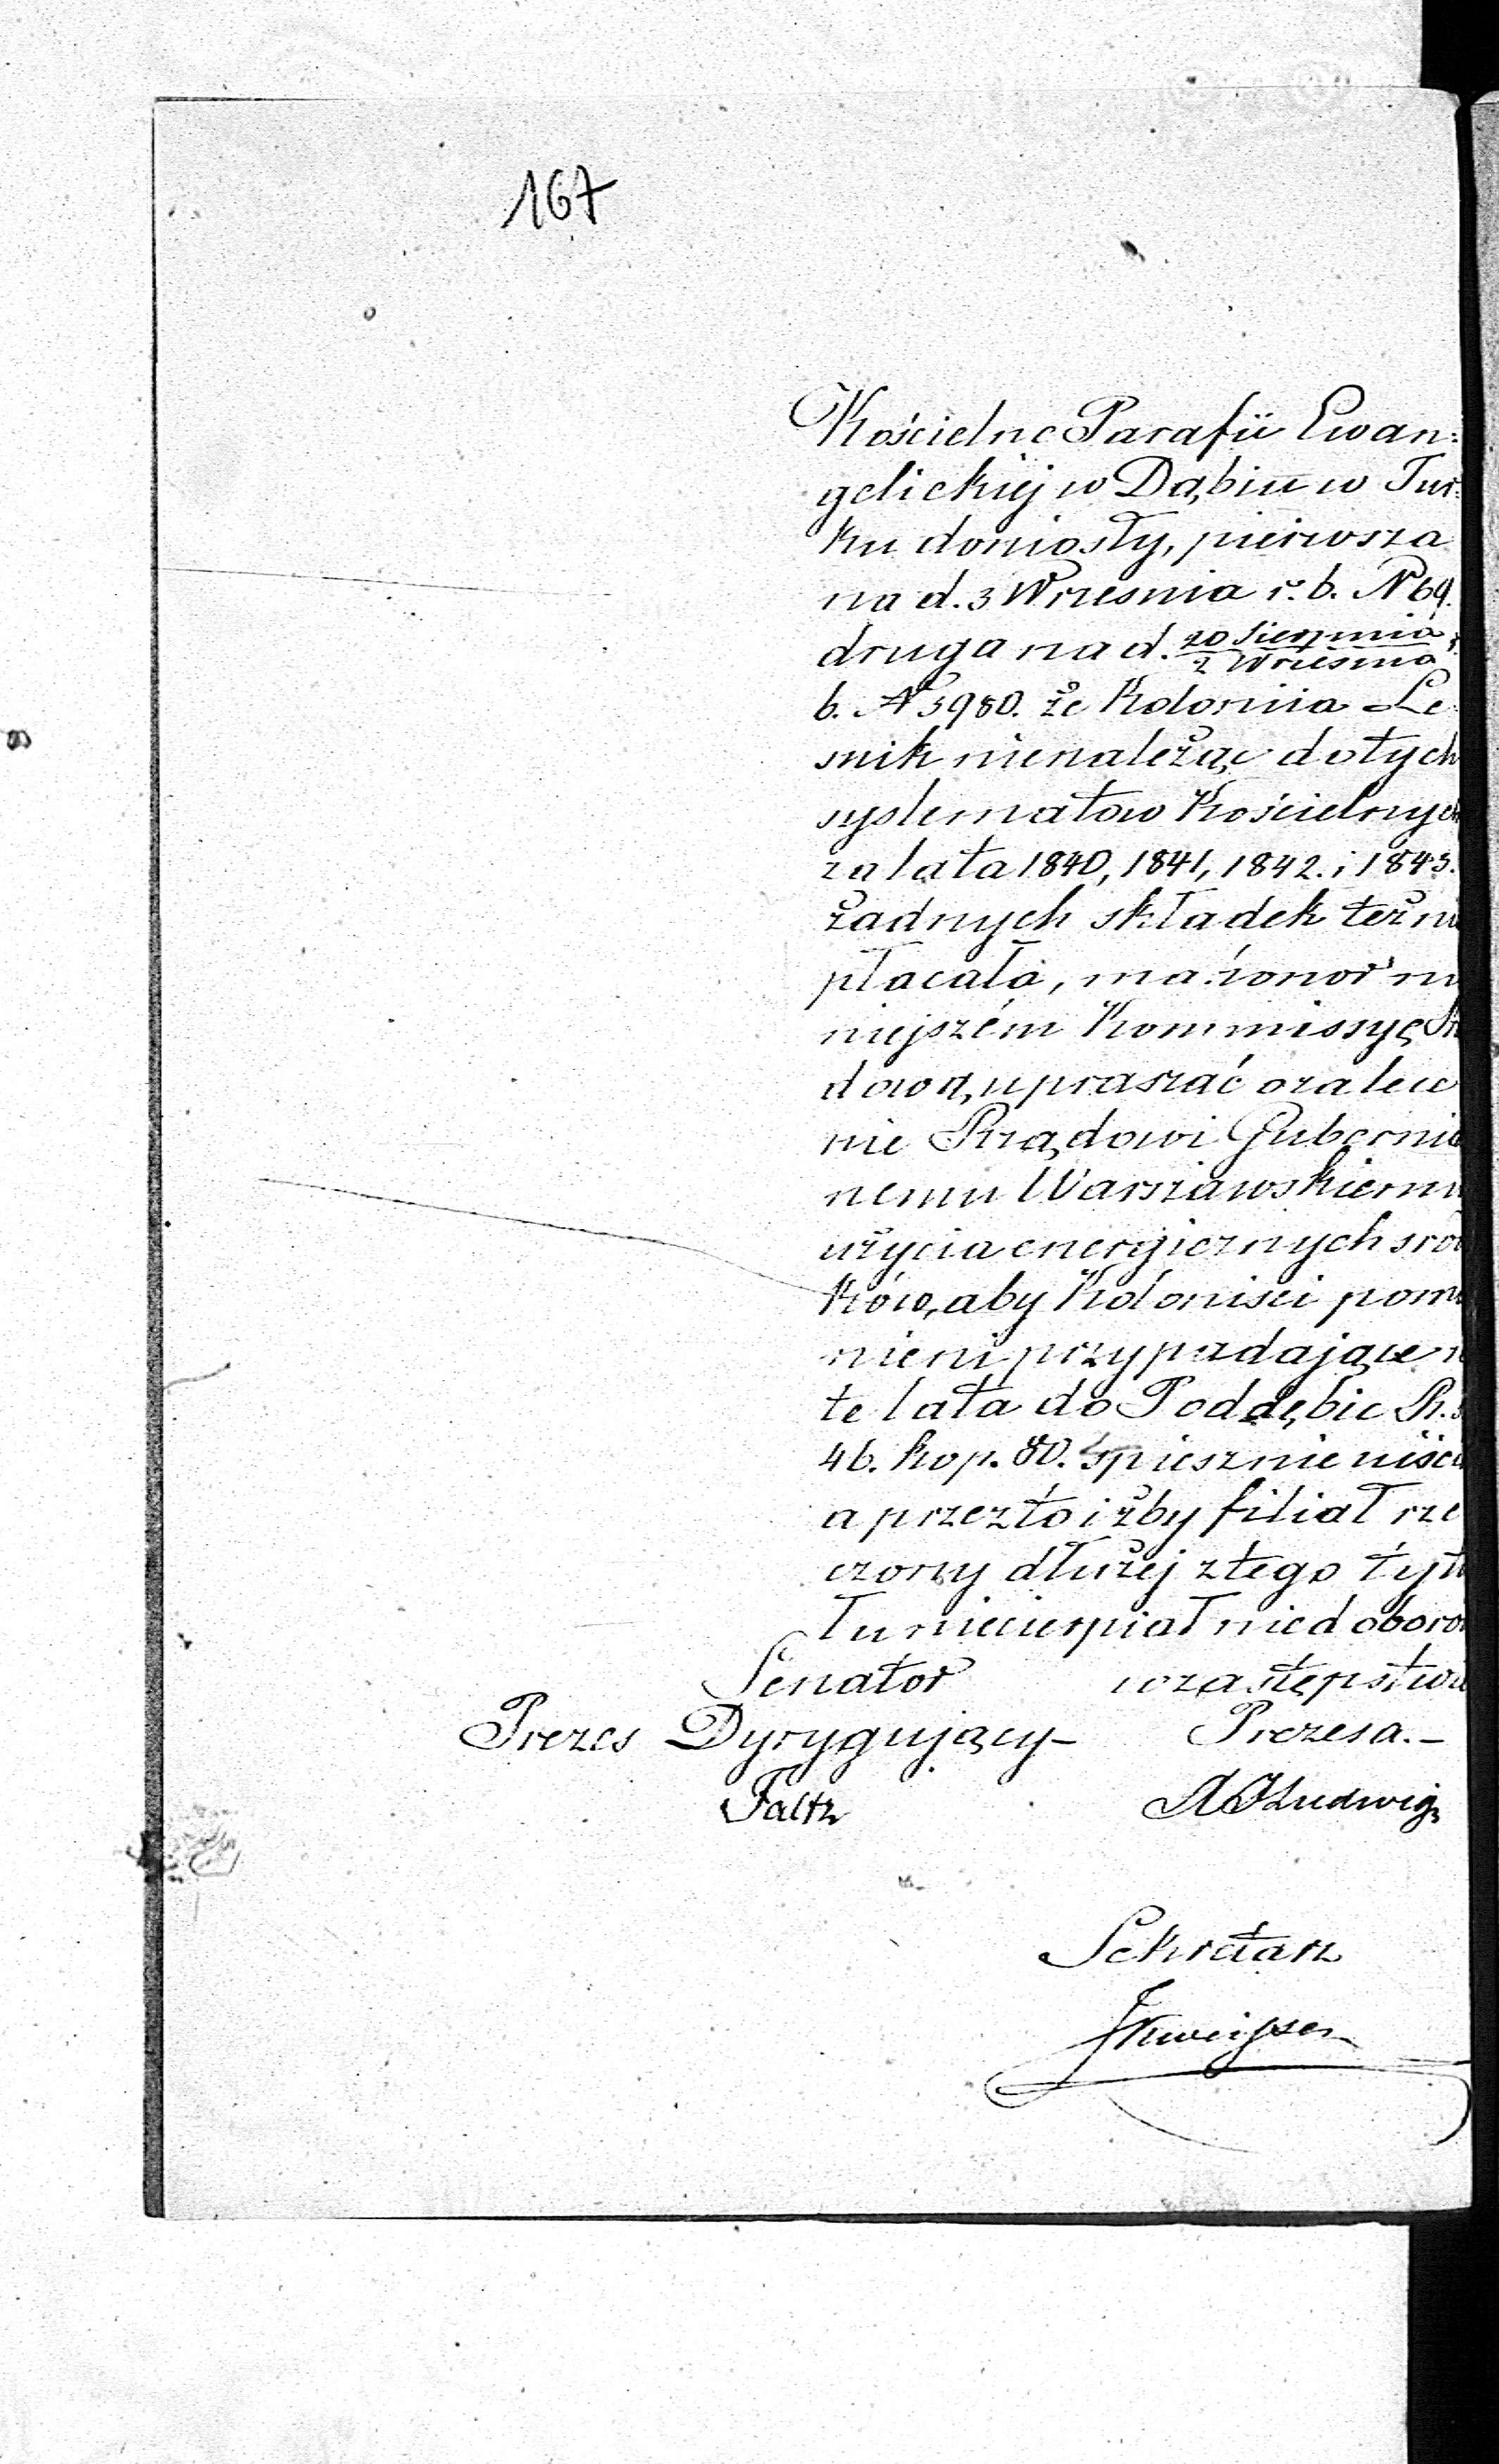 167
Kościelne Parafii Ewan:
gelickiej w Dąbiu w Tur:
ku doniosły, pierwsza
na d. 3 Wrzesnia r. b. N 69.
druga na d. 20 Sierpnia / 2 Wrzesnia r.
b. N 3980. że Koloniia Le
snik nienależąc do tych
systematow Kościelnych
za lata 1840, 1841, 1842. i 1843.
żadnych składek też ni
płacała, ma honor ni
niejszém Kommissyę Rz
dową, upraszać o zalece
nie Rządowi Gubernia
nemu Warszawskiemu
użycia energicznych srod
ków, aby Kolonisci pomi
nieni przypadające n
te lata do Poddębic R. s
46. kop. 80. spiesznie uiści
a przezto iżby filiał rze
czony dłużej z tego tytu
łu niecierpiał niedoboro
Senator w zastępstwie
Prezes Dyrygujący - Prezesa. -
Faltz Ludwig
Sekretarz